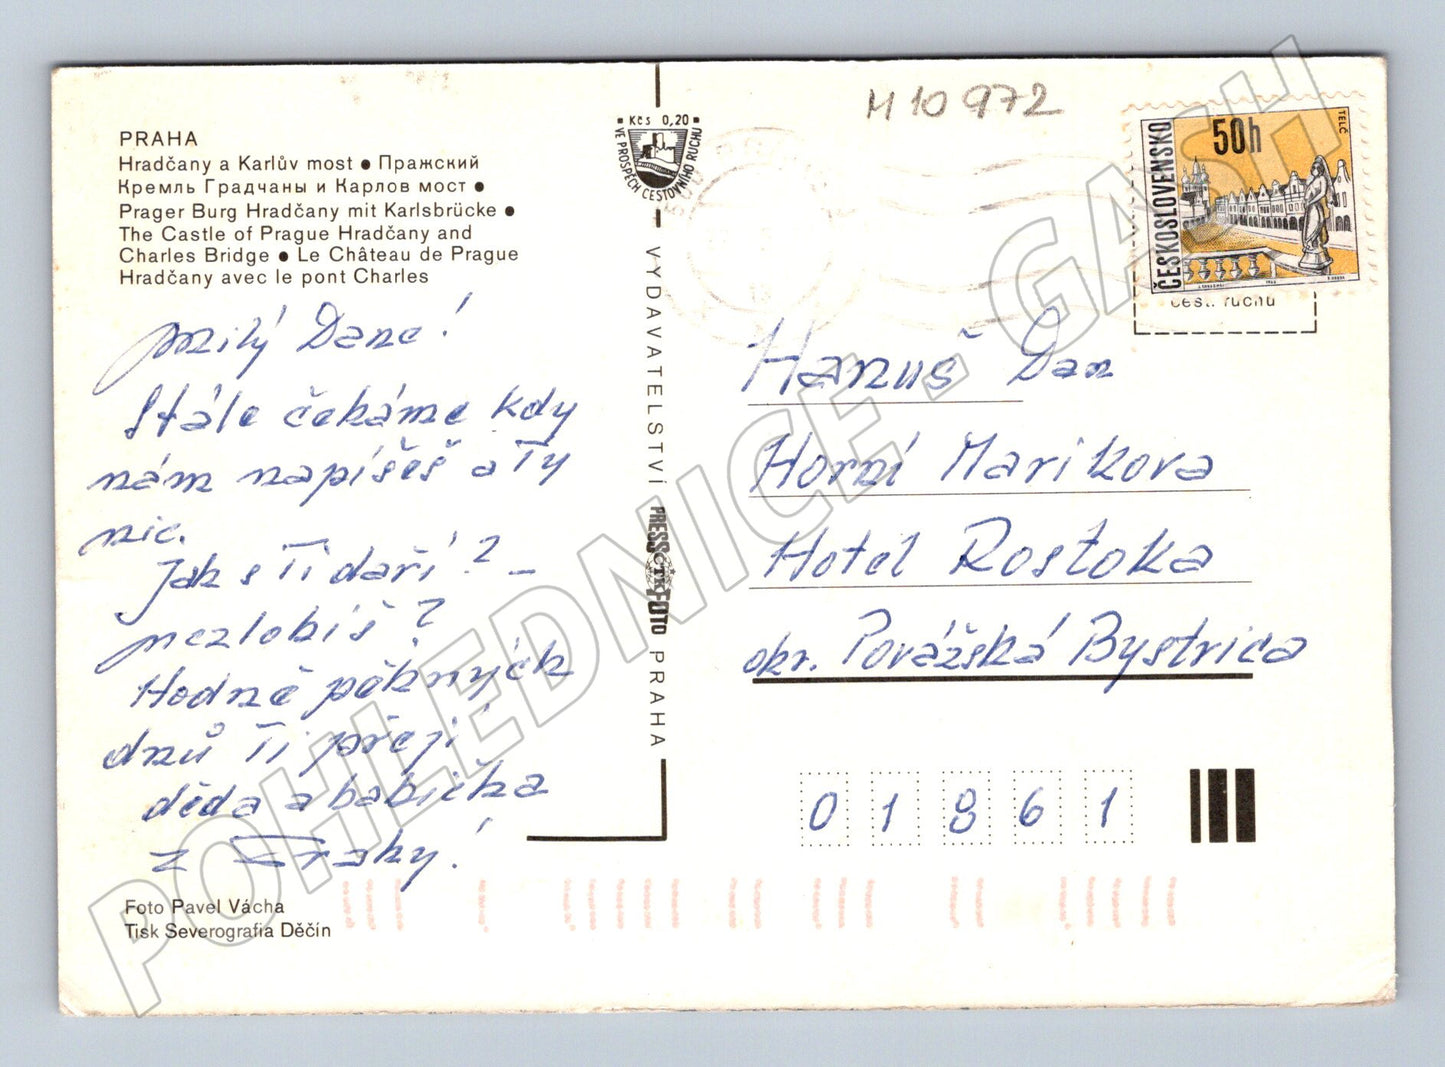 PRAHA
Hradčany a Karlův most ● Пражский
Кремль Градчаны и Карлов мост ●
Prager Burg Hradčany mit Karlsbrücke ●
The Castle of Prague Hradčany and
Charles Bridge ● Le Château de Prague
Hradčany avec le pont Charles
Milý Dane!
Stále čekáme kdy
nám napíšeš a Ty
nic.
Jak s Ti daří? –
nezlobíš?
Hodně pěkných
dnů Ti přejí
děda a babička
z Prahy!
Foto Pavel Vácha
Tisk Severografia Děčín
Kčs 0,20
VE PROSPĚCH CESTOVNÍHO RUCHU
VYDAVATELSTVÍ PRESSFOTO PRAHA
ČTK
M 10 972
ČESKOSLOVENSKO
50h
TELČ
cest. ruchu
Hanuš Dan
Horní Marikova
Hotel Rostoka
okr. Povážská Bystrica
01861
POHLEDNICE.GASH